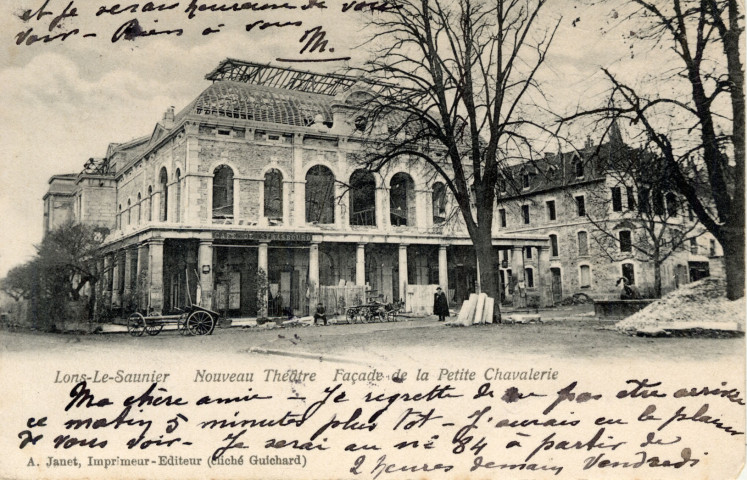 et je serais heureuse de vous
voir - Bien à vous
M.
CAFÉ DE STRASBOURG
Lons-Le-Saunier Nouveau Théâtre Façade de la Petite Chavalerie
Ma chère amie - Je regrette de ne pas être arrivée
ce matin 5 minutes plus tôt - J'aurais eu le plaisir
de vous voir - Je serai au nº 84 à partir de
2 heures demain Vendredi
A. Janet, Imprimeur-Editeur (cliché Guichard)